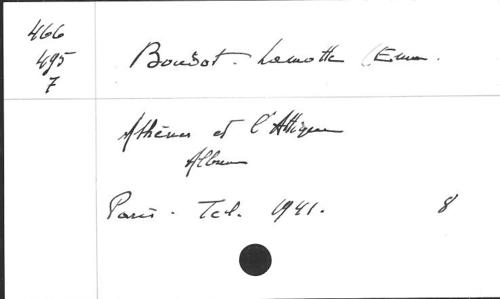 466
495
7
Boudot-Lamotte (Emm.
Athènes et l'Attique
Album
Paris - Tel. 1941.
8